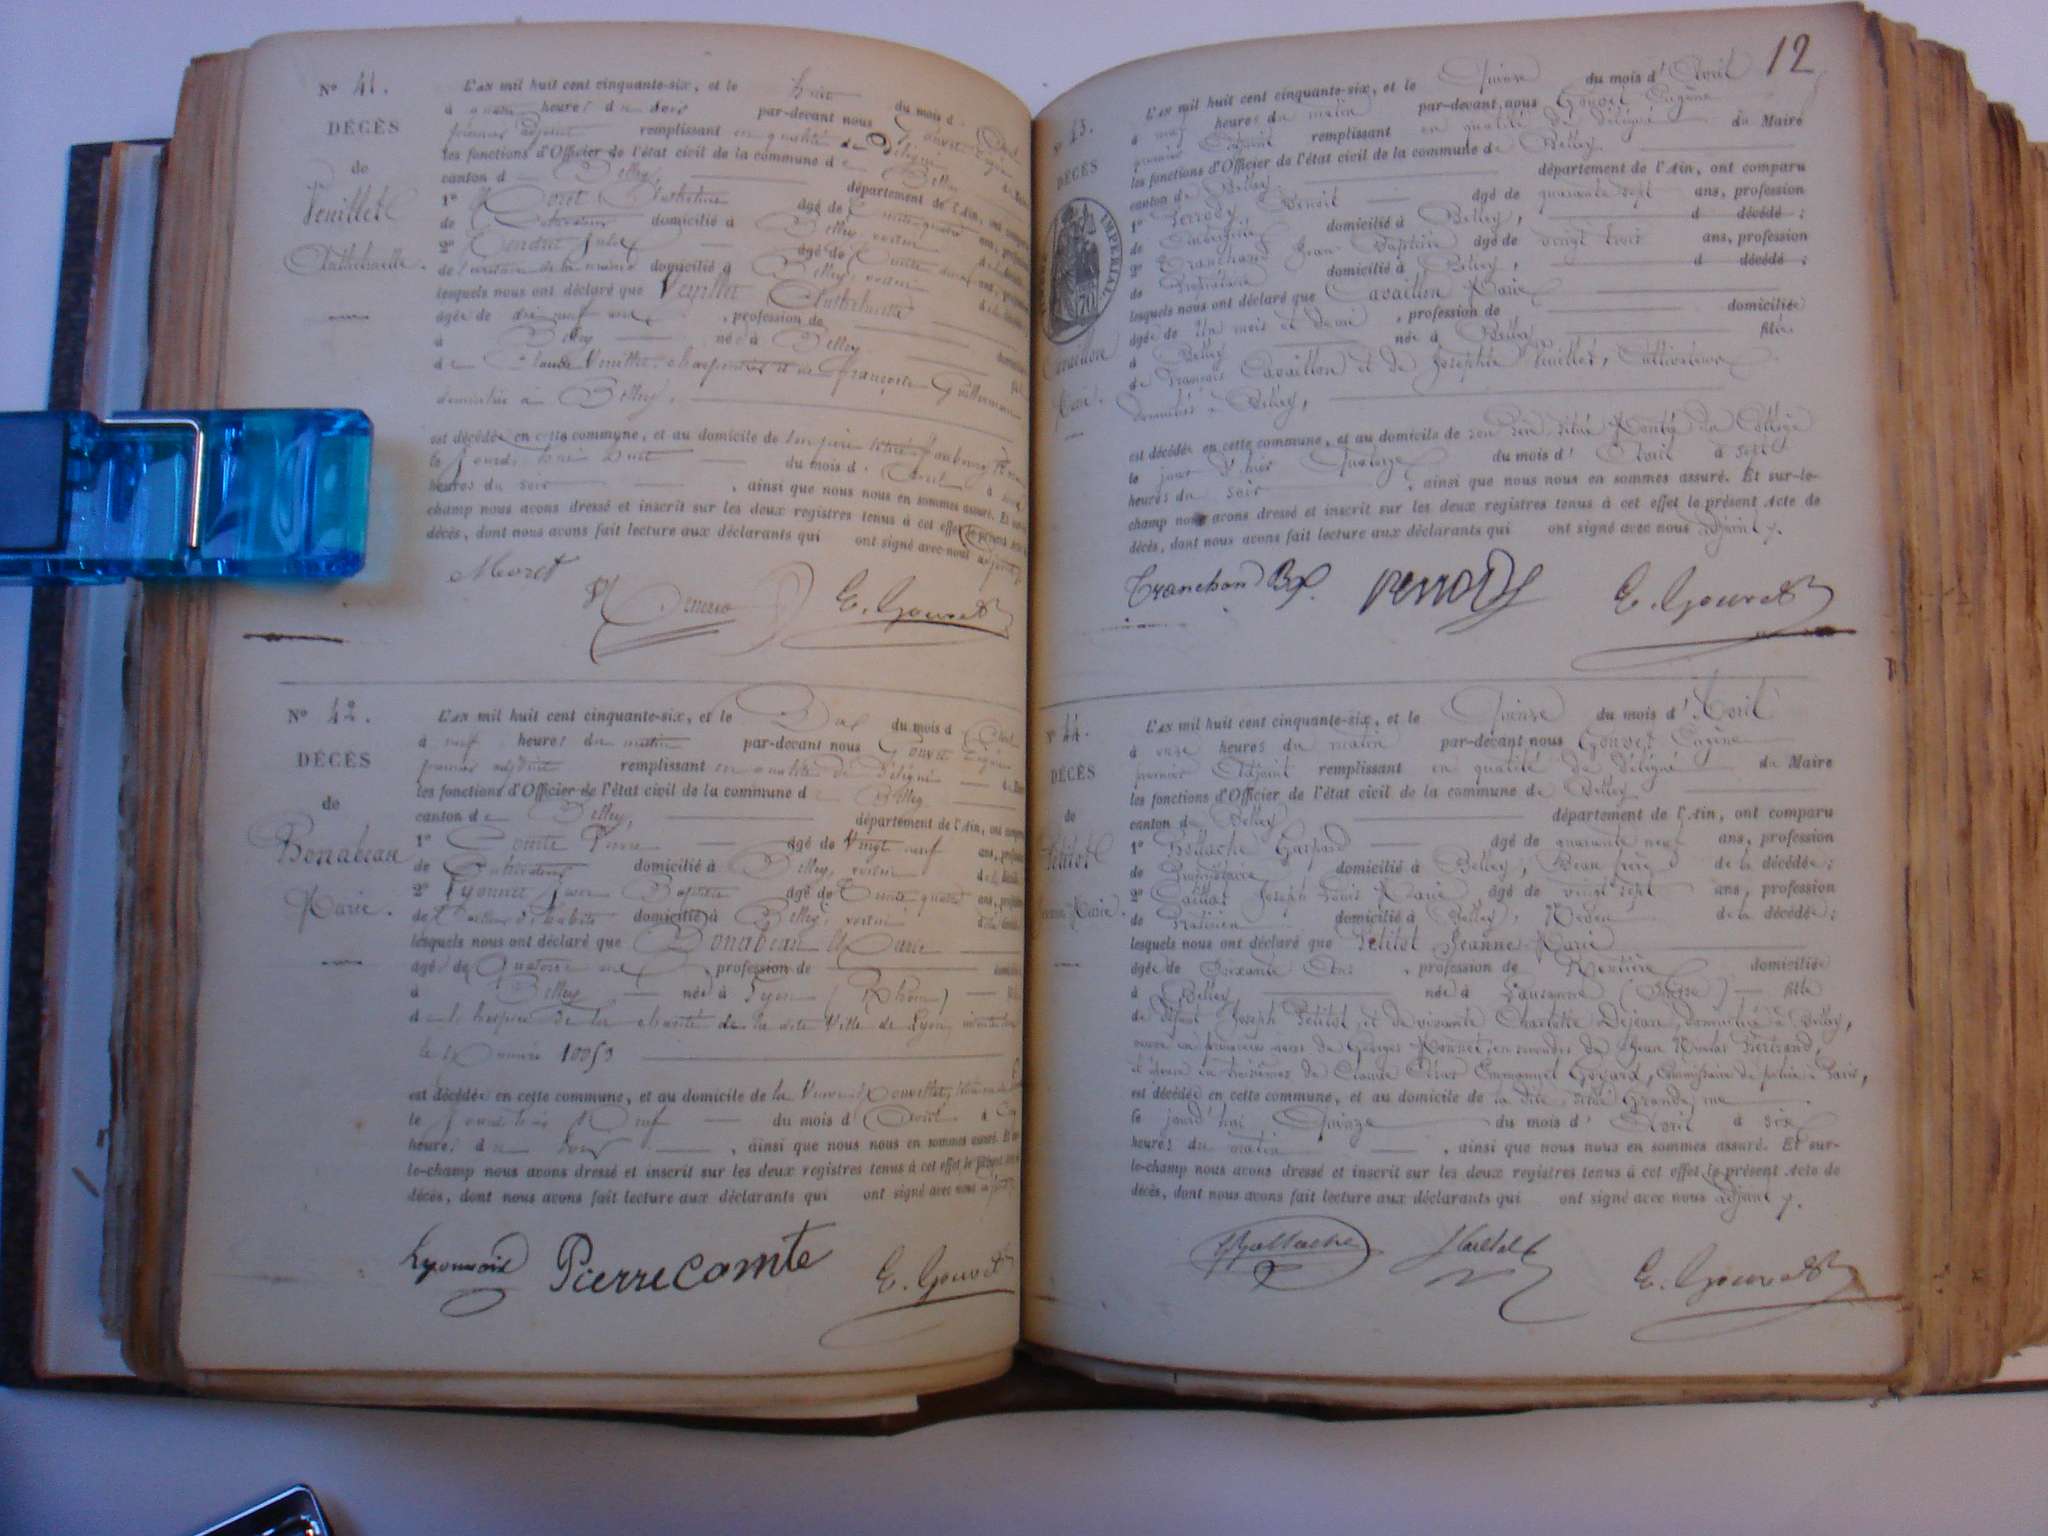 N° 41.
DÉCÈS
de
Veuillet
L'AN mil huit cent cinquante-six, et le huit du mois d'
à quatre heures du soir par-devant nous Gouvet Eugène
premier adjoint remplissant en qualité de Délégué
les fonctions d'Officier de l'état civil de la commune de Belley
canton de Belley, département de l'Ain, ont comparu
1° Moret âgé de ans, profession
de domicilié à Belley, voisin
2° Jules âgé de ans, profession
de domicilié à Belley, voisin
lesquels nous ont déclaré que
âgée de dix neuf ans, profession de
à Belley née à Belley
de Claude et de françoise
domiciliés à Belley,
est décédée en cette commune, et au domicile de
le jourd'hui huit du mois d'
heures du soir, ainsi que nous nous en sommes assuré. Et sur-le-
champ nous avons dressé et inscrit sur les deux registres tenus à cet effet le présent Acte de
décès, dont nous avons fait lecture aux déclarants qui ont signé avec nous adjoint
Moret E. Gouvet
N° 42.
DÉCÈS
de
Bonabeau
Marie.
L'AN mil huit cent cinquante-six, et le Dix du mois d'
à neuf heures du matin par-devant nous Gouvet Eugène
premier adjoint remplissant en qualité de Délégué
les fonctions d'Officier de l'état civil de la commune de Belley
canton de Belley, département de l'Ain, ont comparu
1° Comte Pierre âgé de Vingt neuf ans, profession
de Cultivateur domicilié à Belley, voisin
2° Lyonnais Jean Baptiste âgé de Trente quatre ans, profession
de domicilié à Belley, voisin
lesquels nous ont déclaré que Bonabeau Marie
âgée de Quatorze ans, profession de
à Belley née à Lyon (Rhône)
de l'hospice de la charité de la dite Ville de Lyon,
le
est décédée en cette commune, et au domicile de la Veuve
le Neuf du mois d'Avril à
heures du soir, ainsi que nous nous en sommes assuré. Et sur-
le-champ nous avons dressé et inscrit sur les deux registres tenus à cet effet le présent
décès, dont nous avons fait lecture aux déclarants qui ont signé avec nous adjoint
Lyonnais Pierre comte E. Gouvet
12
N° 43.
DÉCÈS
IMPERIAL
70
Cavaillon
Marie.
L'AN mil huit cent cinquante-six, et le Quinze du mois d'Avril
à neuf heures du matin par-devant nous Gouvet Eugène
premier Adjoint remplissant en qualité de Délégué du Maire
les fonctions d'Officier de l'état civil de la commune de Belley
canton de Belley département de l'Ain, ont comparu
1° Perrody Benoit âgé de quarante sept ans, profession
de Aubergiste domicilié à Belley, d décédé;
2° Tranchand Jean Baptiste âgé de vingt trois ans, profession
de Propriétaire domicilié à Belley, d décédé;
lesquels nous ont déclaré que Cavaillon Marie
âgée de Un mois et demi, profession de domiciliée
à Belley née à Belley fille
de François Cavaillon et de Josephte Veuillet, Cultivateurs
domiciliés à Belley,
est décédée en cette commune, et au domicile de son Père situé Montée du Collège
le jour d'hier Quatorze du mois d'Avril à sept
heures du soir, ainsi que nous nous en sommes assuré. Et sur-le-
champ nous avons dressé et inscrit sur les deux registres tenus à cet effet le présent Acte de
décès, dont nous avons fait lecture aux déclarants qui ont signé avec nous adjoint
Tranchand Bte Perrody E. Gouvet
N° 44.
DÉCÈS
de
Petitot
Jeanne Marie.
L'AN mil huit cent cinquante-six, et le Quinze du mois d'Avril
à onze heures du matin par-devant nous Gouvet Eugène
premier Adjoint remplissant en qualité de Délégué du Maire
les fonctions d'Officier de l'état civil de la commune de Belley
canton de Belley département de l'Ain, ont comparu
1° Gaspard âgé de quarante neuf ans, profession
de Propriétaire domicilié à Belley, Beau frère de la décédée;
2° Joseph Louis Marie âgé de vingt sept ans, profession
de Praticien domicilié à Belley, Neveu de la décédée;
lesquels nous ont déclaré que Petitot Jeanne Marie
âgée de Soixante Ans, profession de Rentière domiciliée
à Belley, née à Lausanne (Suisse) fille
de défunt Joseph Petitot, et de vivante Charlotte Dejean, domiciliée à Belley,
veuve en premières noces de Georges Monnet, en secondes de Jean Bertrand,
et épouse en troisièmes de Claude Emmanuel Goyard, Commissaire de police à Paris,
est décédée en cette commune, et au domicile de la dite, situé Grande rue
le jourd'hui Quinze du mois d'Avril à six
heures du matin, ainsi que nous nous en sommes assuré. Et sur-
le-champ nous avons dressé et inscrit sur les deux registres tenus à cet effet le présent Acte de
décès, dont nous avons fait lecture aux déclarants qui ont signé avec nous adjoint
E. Gouvet